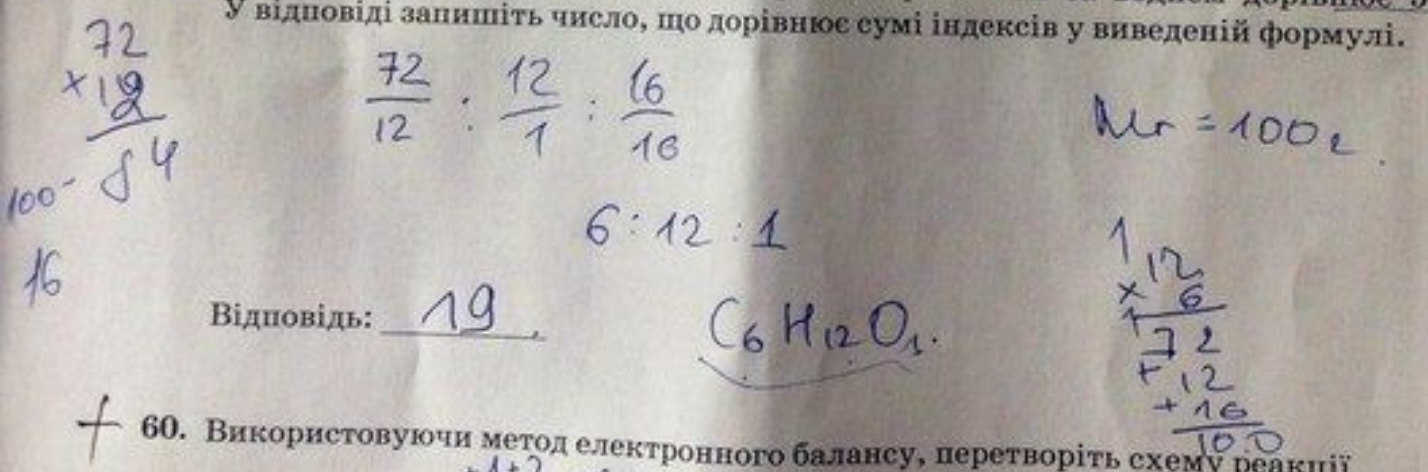 У відповіді запишіть число, що дорівнює сумі індексів у виведеній формулі.
72
× 12
84
100 -
16
72/12 : 12/1 : 16/16
Mr = 100 г.
6 : 12 : 1
1
12
× 6
72
+ 12
+ 16
100
Відповідь: 19.
C₆H₁₂O₁.
+ 60. Використовуючи метод електронного балансу, перетворіть схему реакції